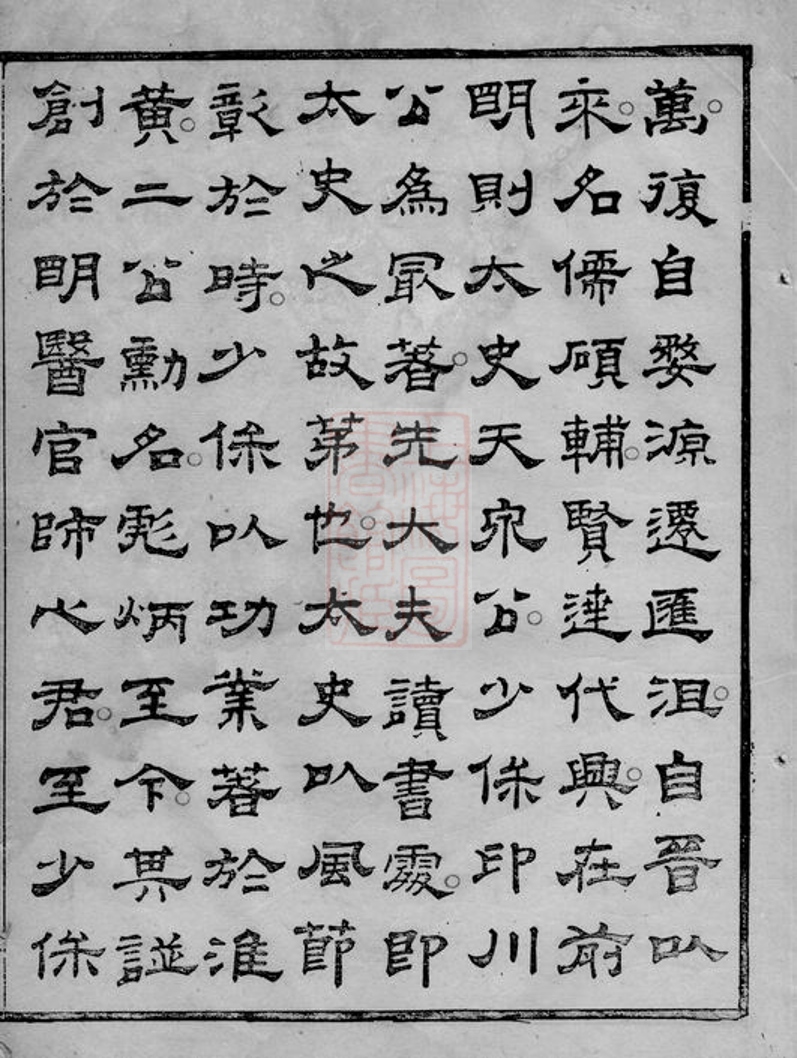 萬。復自婺源遷匯沮。自晉㠯
來。名儒碩輔。賢達代興。在前
明則太史天泉公。少保印川
公為冣著。先大夫讀書處。即
太史之故第也。太史㠯風節
彰於時。少保㠯功業著於淮
黃。二公勳名。彪炳至今。其譜
創於明醫官師心君。至少保